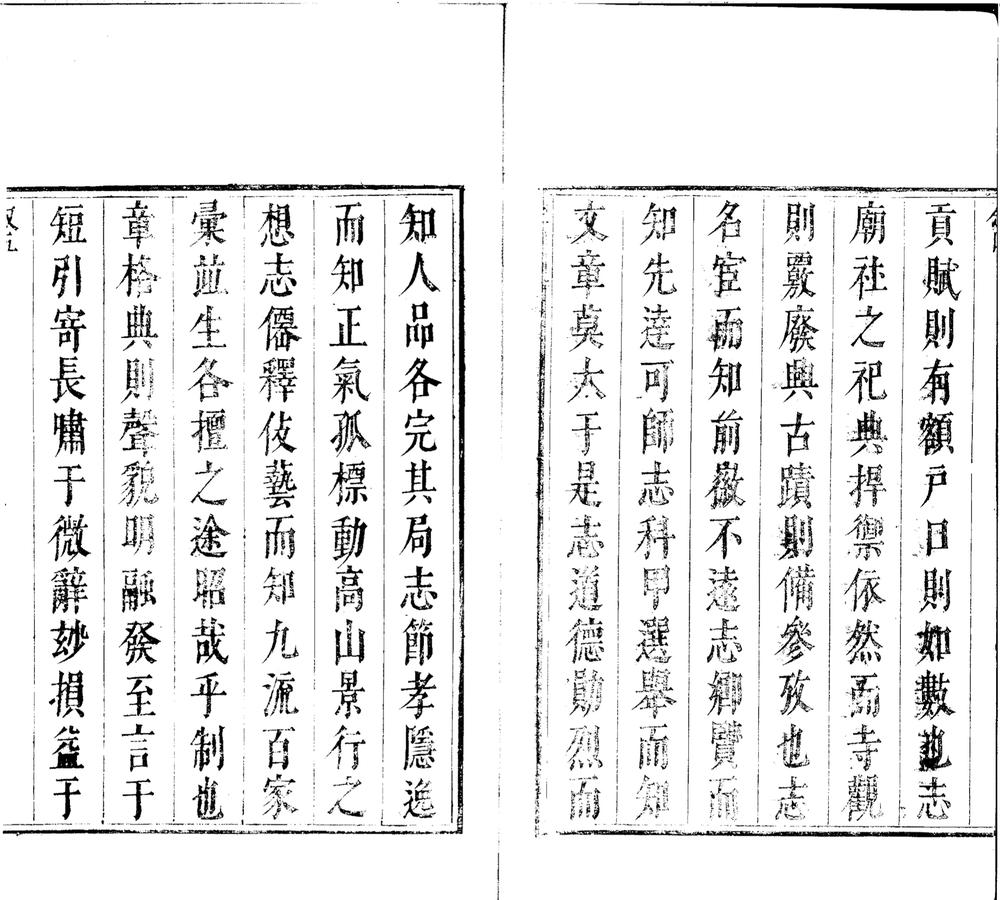 貢賦則有額戶口則如數也志
廟社之祀典捍禦依然而寺觀
則覈廢興古蹟則備參攷也志
名宦而知前徽不遠志鄉賢而
知先達可師志科甲選舉而知
文章莫大于是志道德勛烈而
知人品各完其局志節孝隱逸
而知正氣孤標動高山景行之
想志僊釋伎藝而知九流百家
彙竝生各擅之途昭哉乎制也
章格典則聲貌明融發至言于
短引寄長嘯于微辭玅損益于